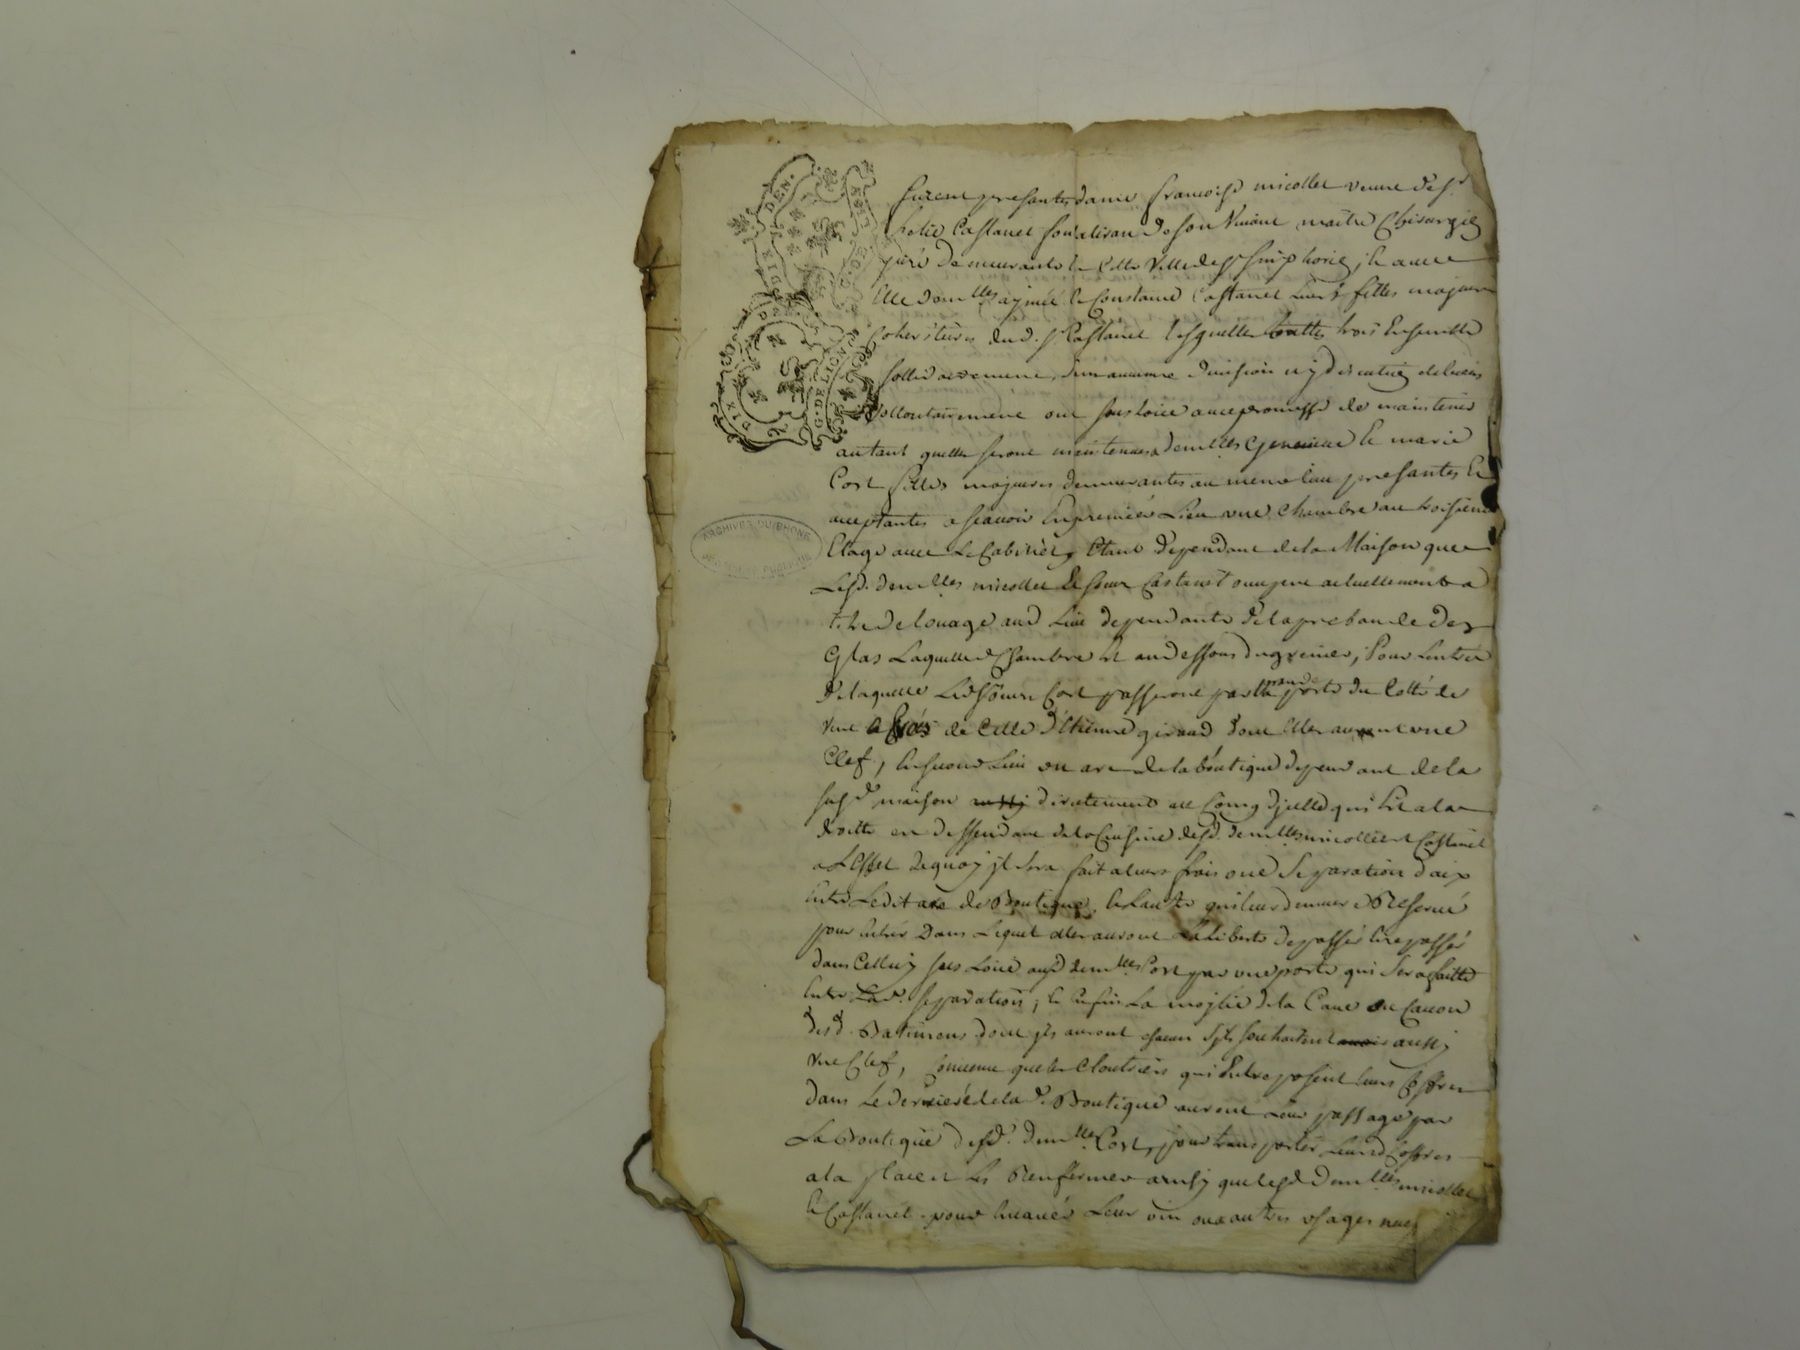 SIX DEN.
G. DE LION
SIX DEN.
G. DE LION
ARCHIVES DU RHONE
furent presantes dame francoise nicollet veuve de sr.
Castanet son vivant maitre Chirurgien
juré demeurante en Cette Ville de St. simphorien, et avec
Elle demlles aymée et Constance Castanet leurs filles majeures
Coheritieres dud. sr. Castanet lesquelles touttes trois Ensemble
sollidairement, division ny discution de biens
vollontairement ont sous loué avec promesse de maintenir
autant quelles seront maintenues, a demlles Genevieve Et marie
Cost filles majeures demeurantes au meme lieu presantes Et
acceptantes a scavoir En premier Lieu une Chambre au troisieme
Etage avec Le Cabinet Etant dependant de la Maison que
Lesd. demlles nicollet Et soeur Castanet actuellement a
titre de louage aud Lieu dependante de la prebande des
Glas Laquelle Chambre Et au dessous du grenier, Pour Lentrée
de laquelle Lesd soeurs Cost passeront par la grande porte du Cotté de
de Celle d'Etienne giraud dont Elles auront une
Clef, En second Lieu un arc de la boutique dependant de la
susd. maison directement au Coing d'jcelle qui Est a la
droitte en dessendant de la Cuisine desd. demlles nicollet et Castanet
a L'effet dequoy jl sera fait a leurs frais une Separation d'aix
Entre Ledit arc de Boutique, et Lautre quileur demeure Reservé
pour Entrer Dans Lequel elles auront La Liberté de passér et repassér
dans Celluy sous Loué ausd demlles Cost par une porte qui sera faitte
Entre Lad. separation, et Enfin La moytié de la Cave ou Cavon
desd. Batiments dont jls auront chacun sjls souhaitent aussy
une Clef, Convenu que les Cloutriers qui Entreposent leurs Coffres
dans Le derrieré de lad. Boutique auront Leur passage par
La Boutique desd. demlles Cost, pour transporter Leursd Coffres
a la place et Les Renfermer ainsy que lesd Demlles nicollet
Et Castanet pour Leur vin ou a autres usages